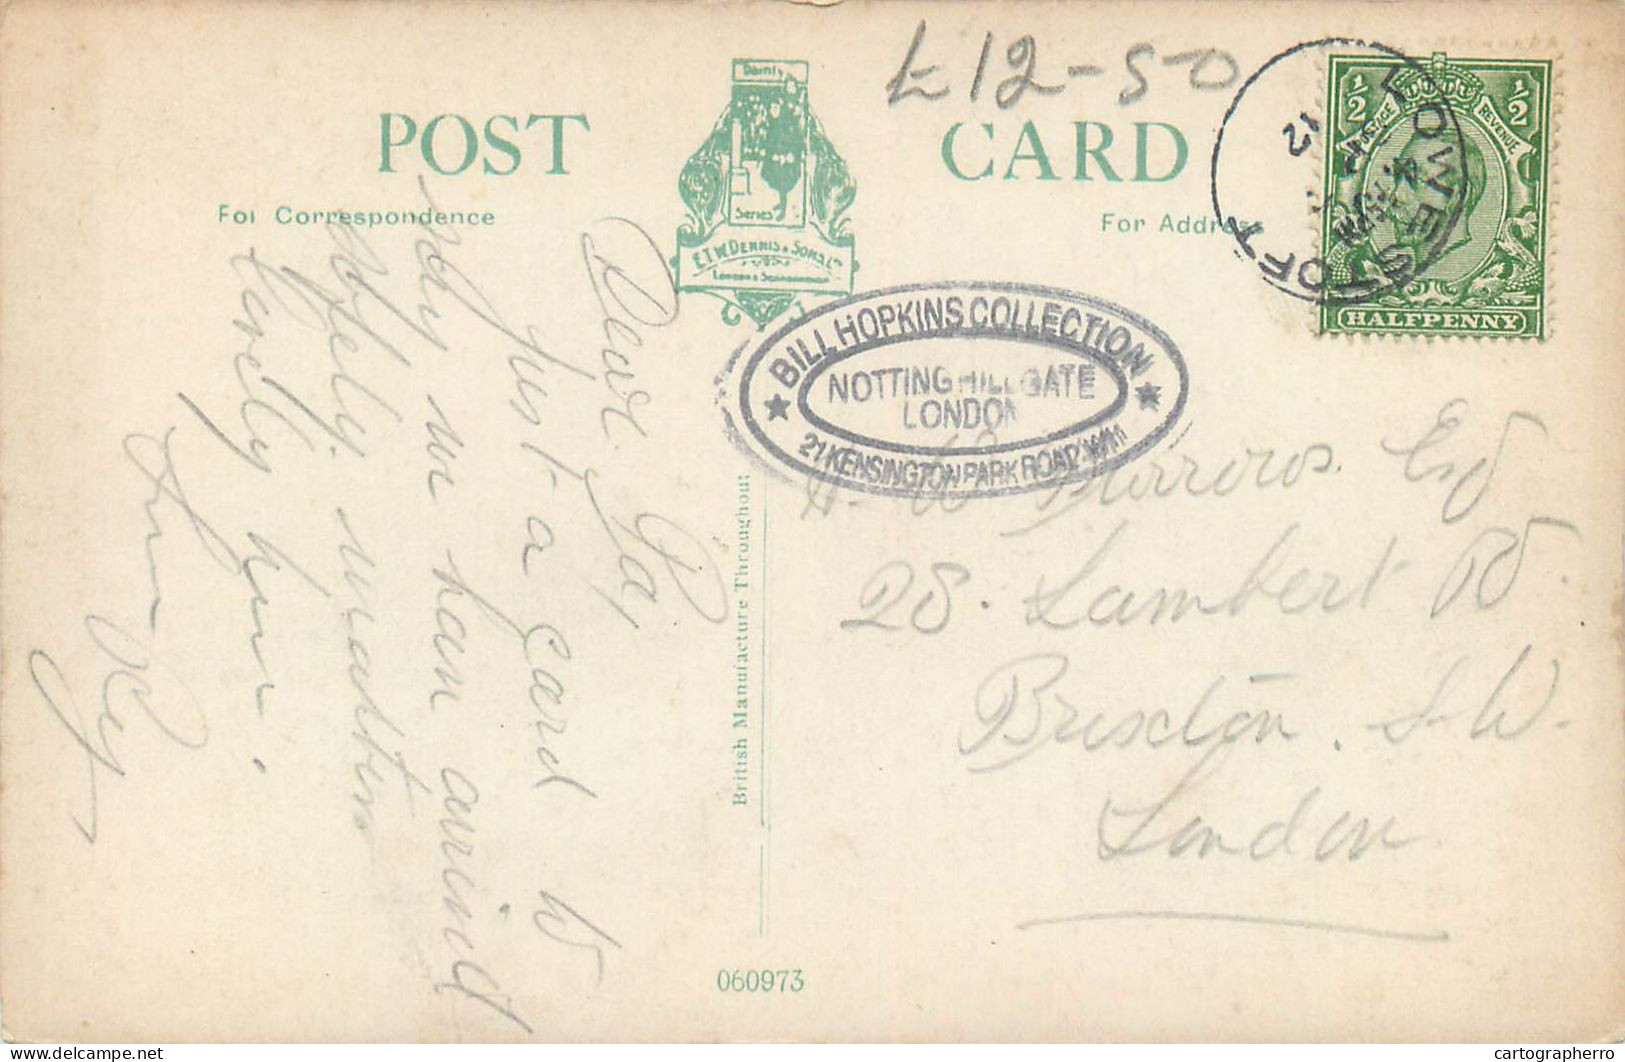 £12-50
POST CARD
For Correspondence
For Address
Dainty
Series
E.T.W. DENNIS & SONS, LTD
LONDON & SCARBOROUGH
LOWESTOFT
12
1/2 1/2
POSTAGE REVENUE
HALFPENNY
★ BILL HOPKINS COLLECTION ★
NOTTING HILL GATE
LONDON
21 KENSINGTON PARK ROAD W11
Dear Pa,
Just a card to
say we have arrived
safely.
lovely here.
Burrows. Esq
28. Lambert Rd.
Brixton. S.W.
London
British Manufacture Throughout
060973
cartographerro
delcampe.net